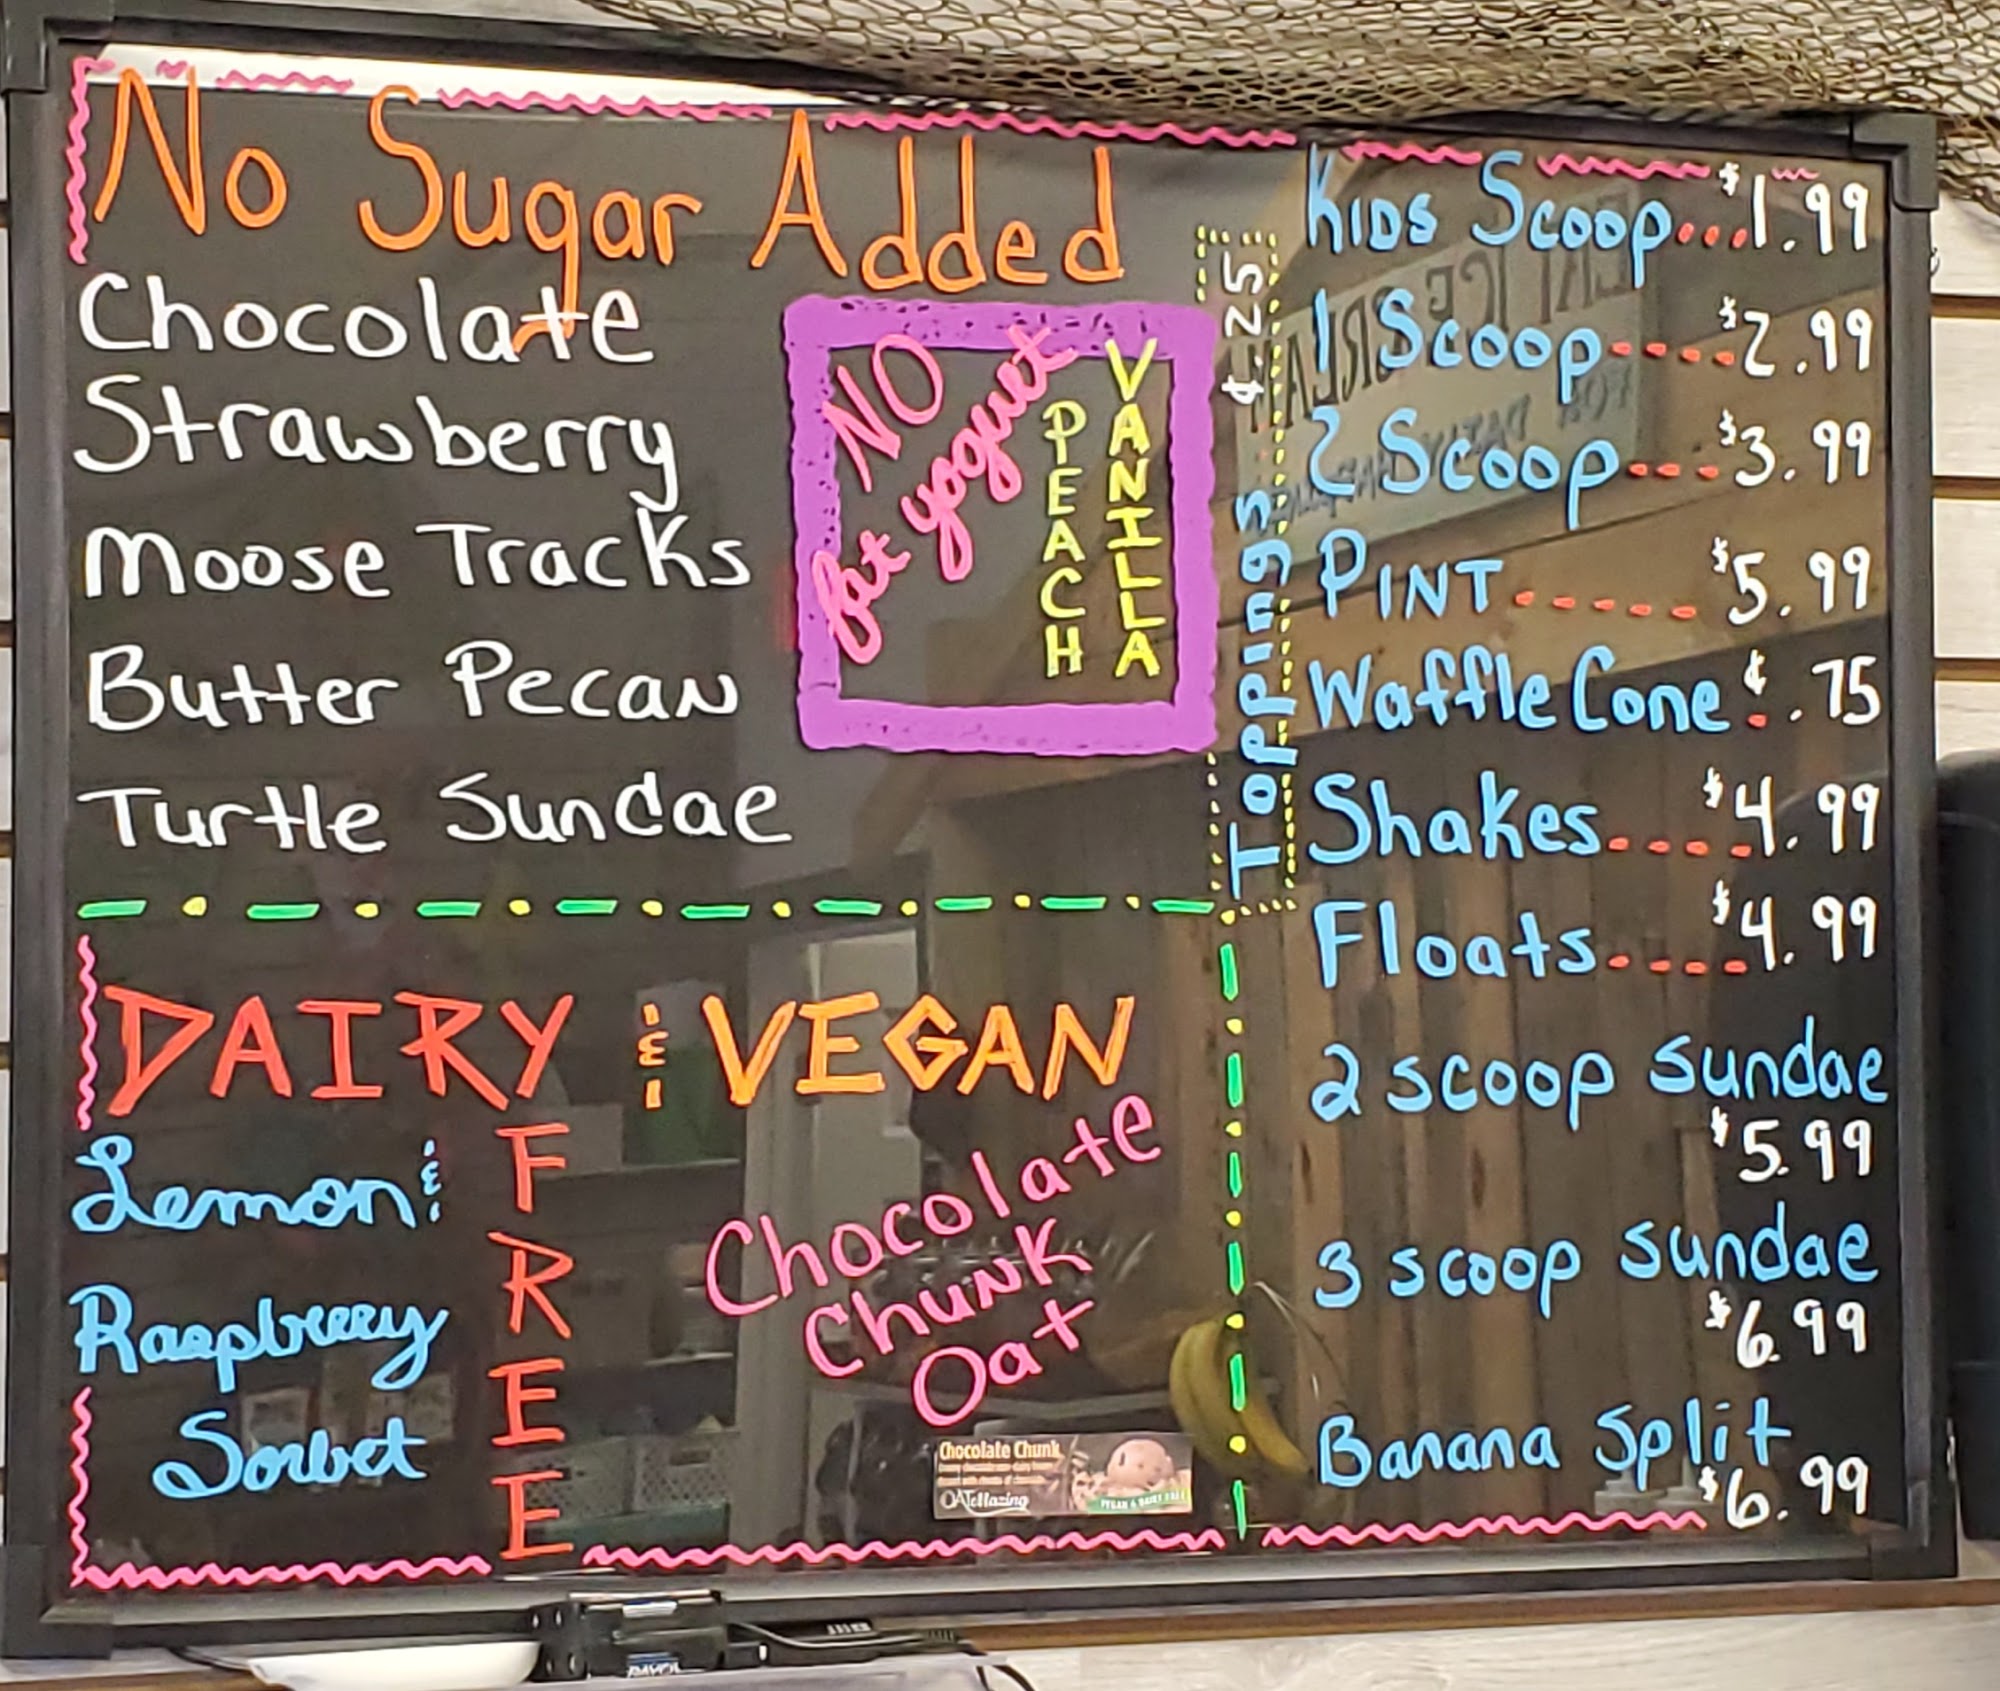 No Sugar Added
Chocolate
Strawberry
Moose Tracks
Butter Pecan
Turtle Sundae
NO
fat yogurt
PEACH
VANILLA
Toppings ¢.25
Kids Scoop...$1.99
1 Scoop----$2.99
2 Scoop---$3.99
PINT-----$5.99
Waffle Cone ¢.75
Shakes----$4.99
Floats----$4.99
2 scoop sundae
$5.99
3 scoop sundae
$6.99
Banana Split
$6.99
DAIRY & VEGAN
FREE
Lemon &
Raspberry
Sorbet
Chocolate
Chunk
Oat
Chocolate Chunk
OATeMazing
VEGAN & DAIRY FREE
EAT ICE CREAM